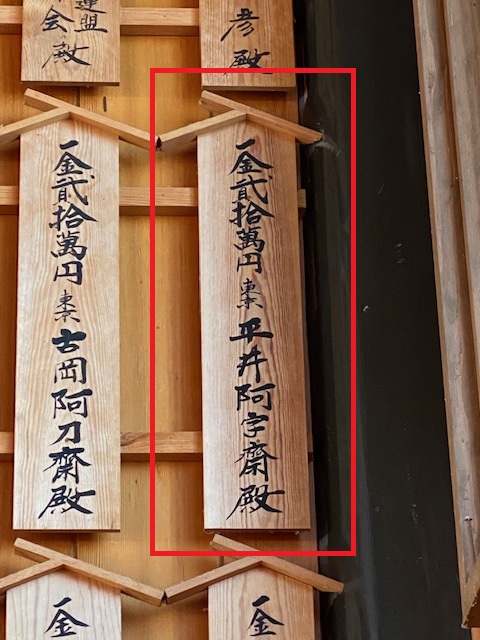 彦殿
連盟
会殿
一金貳拾萬円 東京 平井阿字齋殿
一金貳拾萬円 東京 吉岡阿刀齋殿
一金
一金